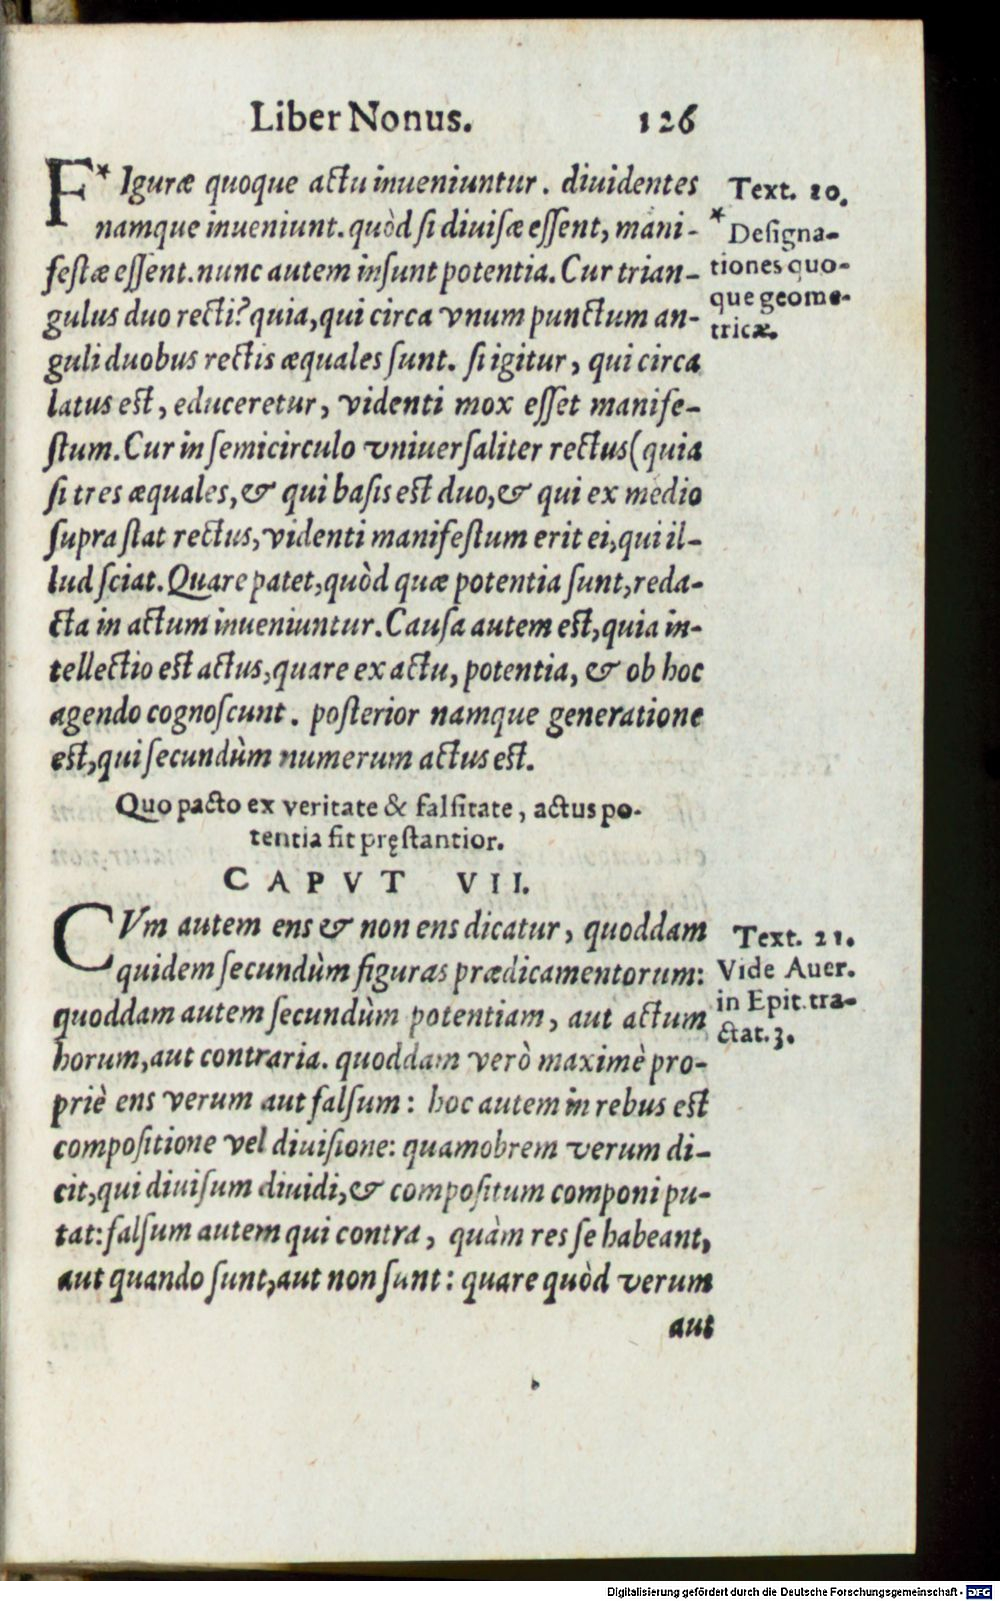 Liber Nonus. 126
F* Iguræ quoque actu inueniuntur. diuidentes
namque inueniunt. quòd si diuisæ essent, mani-
festæ essent. nunc autem insunt potentia. Cur trian-
gulus duo recti? quia, qui circa vnum punctum an-
guli duobus rectis æquales sunt. si igitur, qui circa
latus est, educeretur, videnti mox esset manife-
stum. Cur in semicirculo vniuersaliter rectus (quia
si tres æquales, & qui basis est duo, & qui ex medio
supra stat rectus, videnti manifestum erit ei, qui il-
lud sciat. Quare patet, quòd quæ potentia sunt, reda-
cta in actum inueniuntur. Causa autem est, quia in-
tellectio est actus, quare ex actu, potentia, & ob hoc
agendo cognoscunt. posterior namque generatione
est, qui secundùm numerum actus est.
Text. 20.
* Designa-
tiones quo-
que geome-
tricæ.
Quo pacto ex veritate & falsitate, actus po-
tentia sit pręstantior.
CAPVT VII.
CVm autem ens & non ens dicatur, quoddam
quidem secundùm figuras prædicamentorum:
quoddam autem secundùm potentiam, aut actum
horum, aut contraria. quoddam verò maximè pro-
priè ens verum aut falsum: hoc autem in rebus est
compositione vel diuisione: quamobrem verum di-
cit, qui diuisum diuidi, & compositum componi pu-
tat: falsum autem qui contra, quàm res se habeant,
aut quando sunt, aut non sunt: quare quòd verum
aut
Text. 21.
Vide Auer.
in Epit. tra-
ctat. 3.
Digitalisierung gefördert durch die Deutsche Forschungsgemeinschaft - DFG